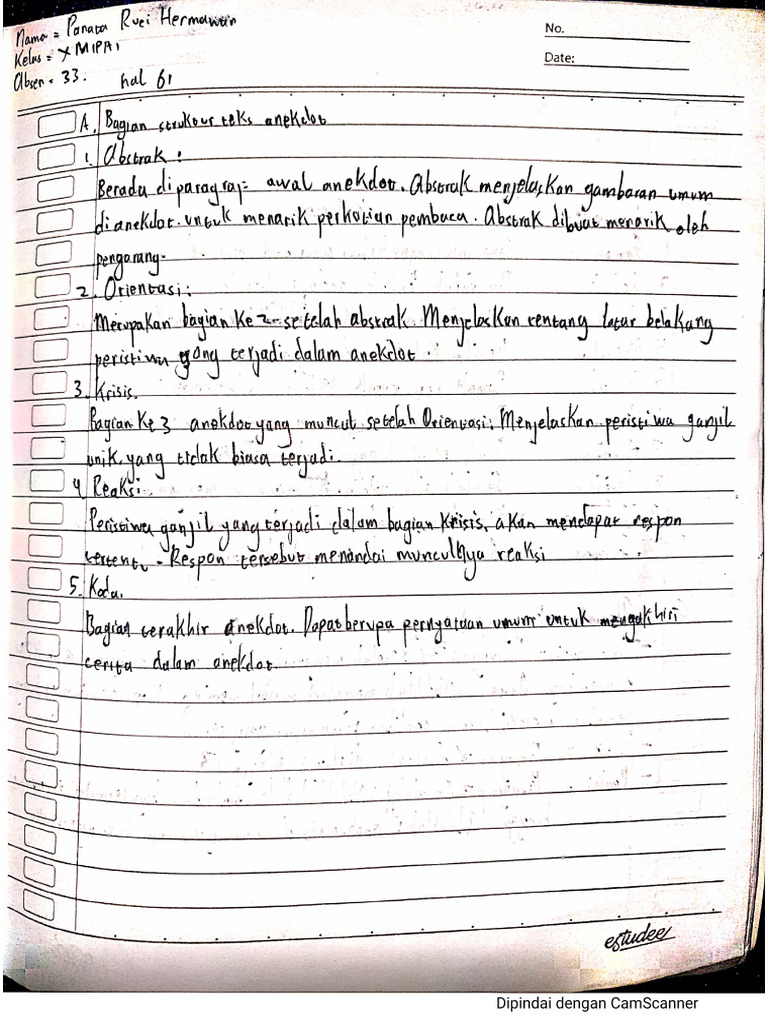 Nama = Panata Ruei Hermawan
Kelas = X MIPA 1
Absen = 33. hal 61
No.
Date:
A. Bagian struktur teks anekdot
1. Abstrak :
Berada di paragraf awal anekdot. Abstrak menjelaskan gambaran umum
di anekdot. untuk menarik perhatian pembaca. Abstrak dibuat menarik oleh
pengarang.
2. Orientasi :
Merupakan bagian ke 2 setelah abstrak. Menjelaskan tentang latar belakang
peristiwa yang terjadi dalam anekdot.
3. Krisis.
Bagian ke 3 anekdot yang muncul setelah Orientasi. Menjelaskan peristiwa ganjil
unik yang tidak biasa terjadi.
4. Reaksi.
Peristiwa ganjil yang terjadi dalam bagian krisis, akan mendapat respon
tertentu. Respon tersebut menandai munculnya reaksi
5. Koda.
Bagian terakhir anekdot. Dapat berupa pernyataan umum untuk mengakhiri
cerita dalam anekdot.
estudee
Dipindai dengan CamScanner